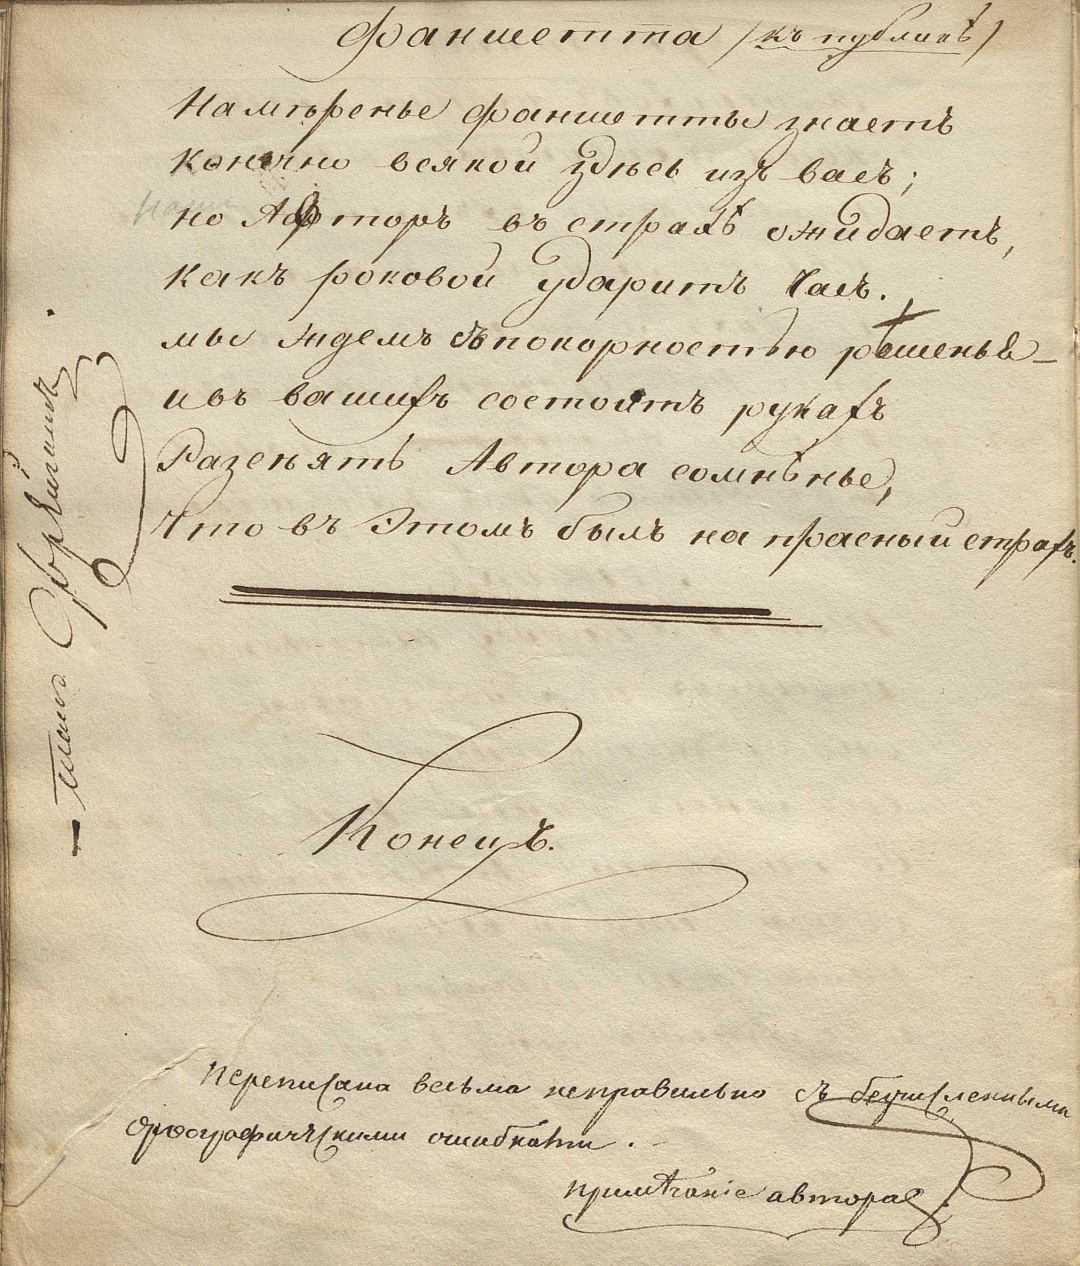 Фаншетта (къ публикѣ)
Намѣренье Фаншетты знаетъ
конечно всякой здѣсь изъ васъ;
но Авторъ въ страхѣ ожидаетъ,
какъ роковой ударитъ Часъ.
мы ждемъ съ покорностью рѣшенье
ивъ вашихъ состоитъ рукахъ
Разснять Автора сомнѣнье,
Что въ Этомъ былъ на прасный страхъ.
Конецъ.
Переписана весьма неправильно съ безчисленными
орфографическими ошибками.
примѣчаніе автора